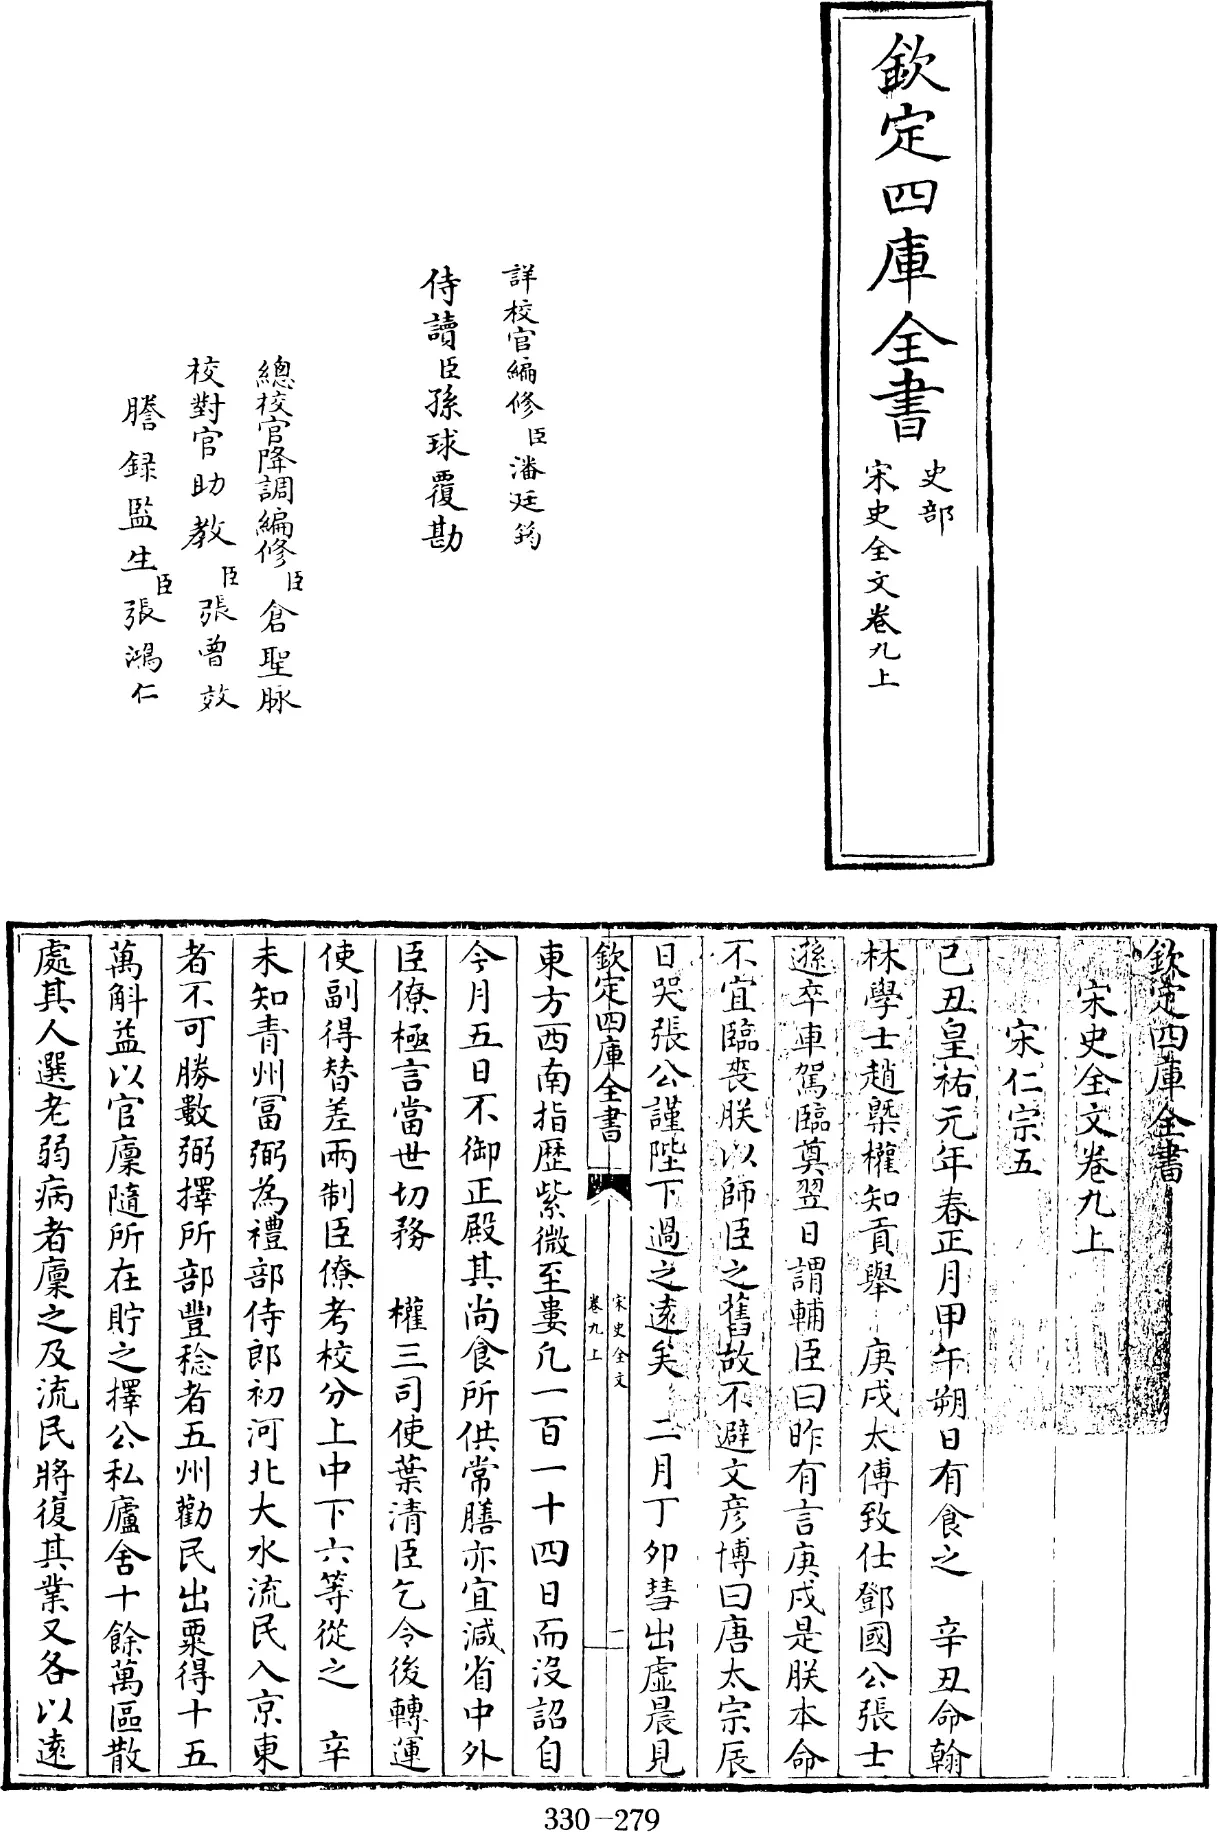 欽定四庫全書
史部
宋史全文卷九上
詳校官編修臣潘廷筠
侍讀臣孫球覆勘
總校官降調編修臣倉聖脉
校對官助教臣張曾效
謄録監生臣張鴻仁
欽定四庫全書
宋史全文卷九上
宋仁宗五
已丑皇祐元年春正月甲午朔日有食之　辛丑命翰
林學士趙槩權知貢舉　庚戌太傅致仕鄧國公張士
遜卒車駕臨奠翌日謂輔臣曰昨有言庚戌是朕本命
不宜臨喪朕以師臣之舊故不避文彦博曰唐太宗辰
日哭張公謹陛下過之逺矣　二月丁夘彗出虚晨見
欽定四庫全書
宋史全文
卷九上
一
東方西南指歴紫微至婁凢一百一十四日而沒詔自
今月五日不御正殿其尚食所供常膳亦宜減省中外
臣僚極言當世切務　權三司使葉清臣乞今後轉運
使副得替差兩制臣僚考校分上中下六等從之　辛
未知青州冨弼為禮部侍郎初河北大水流民入京東
者不可勝數弼擇所部豐稔者五州勸民出粟得十五
萬斛益以官廩隨所在貯之擇公私廬舍十餘萬區散
處其人選老弱病者廩之及流民將復其業又各以逺
330-279